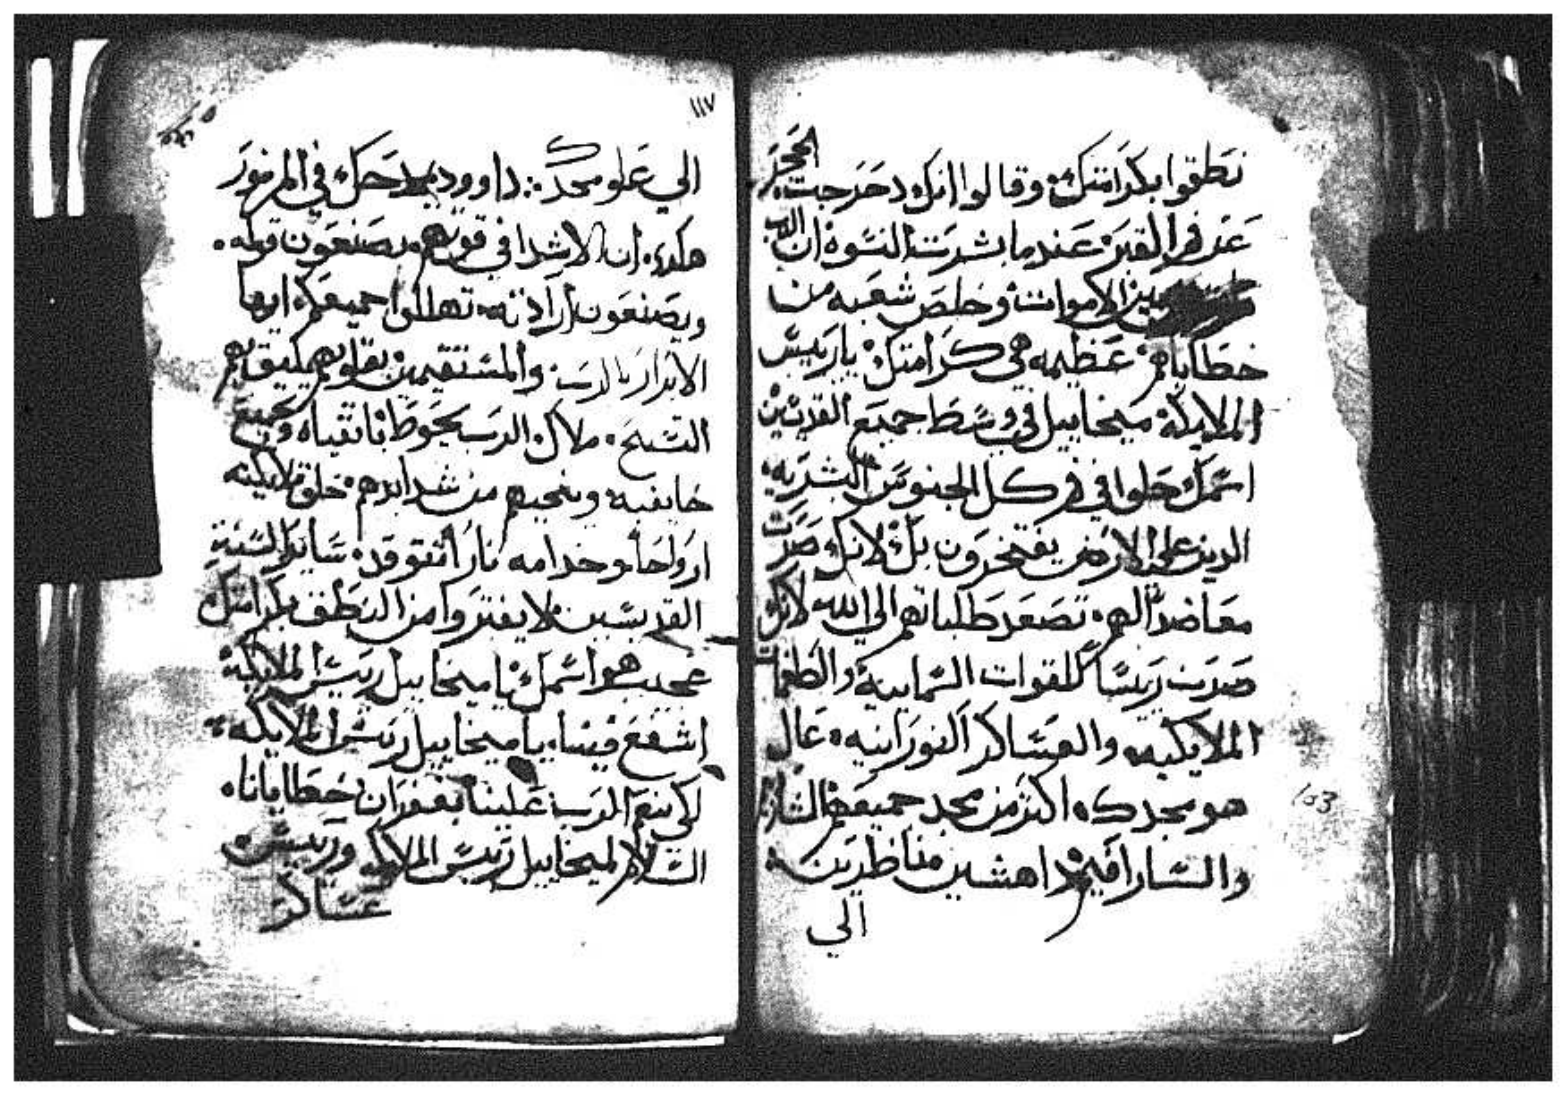 نطقوا بكرامتك وقالوا انك دحرجت الحجر
عن فم القبر عندما بشرت النسوة ان الله
بين الاموات وخلص شعبه من
خطاياهم عظيمه هي كرامتك يا رييس
الملايكة ميخاييل في وسط جميع القديسين
اسمك حلوا في فم كل الجنوس البشريه
الدين على الارض يفتخرون بك لانك صرت
معاضداً لهم تصعد طلباتهم الي الله لانك
صرت رييسا للقوات السماييه والطغمات
الملايكيه والعساكر النورانيه عال
هو مجدك اكثر من مجد جميعهم
والسارافيم داهشين مناظرين
الي
103
١١٧
الي علو مجدك داوود يمدحك في المزمور
هكدا ان الاشدا في قوتهم يصنعون قوله
ويصنعون ارادته تهللوا جميعكم ايها
الابرار بالرب والمستقيمين بقلوبهم يليق بهم
التسبيح ملاك الرب يحوط باتقياه وجميع
خايفيه وينجيهم من شدايدهم خلق ملايكته
ارواحا وخدامه ناراً تتوقد ساير السنة
القديسين لا يفتروا من النطق بكرامتك
عجيب هو اسمك يا ميخاييل رييس الملايكة
اشفع فينا يا ميخاييل رييس الملايكه
لكي ينعم الرب علينا بغفران خطايانا
السلام لميخاييل رييس الملايكه ورييس
عساكر